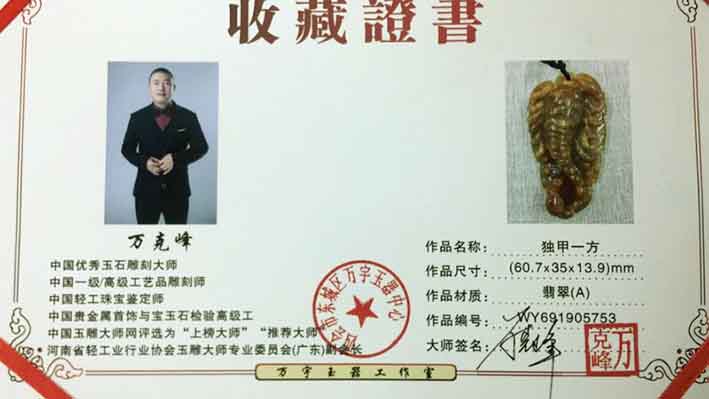 收藏證書
万克峰
中国优秀玉石雕刻大师
中国一级/高级工艺品雕刻师
中国轻工珠宝鉴定师
中国贵金属首饰与宝玉石检验高级工
中国玉雕大师网评选为“上榜大师”“推荐大师”
河南省轻工业行业协会玉雕大师专业委员会(广东)副会长
作品名称: 独甲一方
作品尺寸: (60.7x35x13.9)mm
作品材质: 翡翠(A)
作品编号: WY691905753
大师签名:
万克峰
会市东城区万字玉器中心
万字玉器工作室